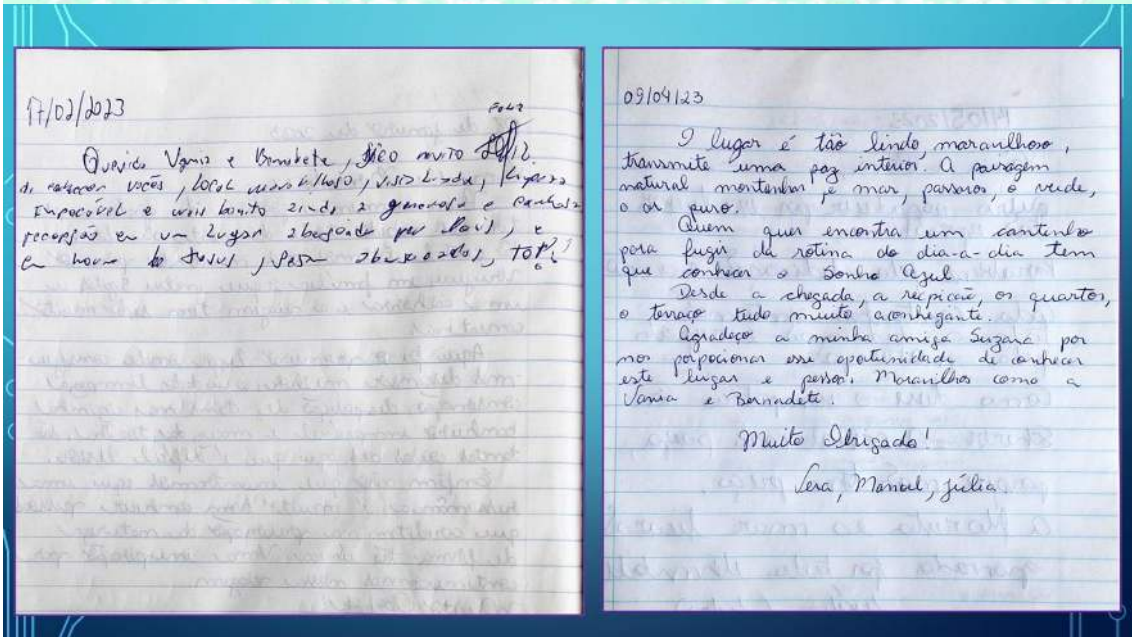 17/02/2023
Querida Vania e Bernadete, fico muito FELIZ
de conhecer vocês, local maravilhoso, vista linda, limpeza
impecável e mais bonito ainda a generosa e
recepção em um lugar abençoado por Deus, e
em nome de Jesus, abençoados, TOP!
09/04/23
O lugar é tão lindo, maravilhoso,
transmite uma paz interior. A paisagem
natural, montanhas e mar, passaros, o verde,
o ar puro.
Quem quer encontra um cantinho
para fugir da rotina do dia-a-dia tem
que conhecer o Sonho Azul.
Desde a chegada, a recpicão, os quartos,
o terraço tudo muito aconhegante.
Agradeço a minha amiga Suzara por
nos porpocionar esse opotunidade de conhecer
este lugar e pessoa. Maravilhos como a
Vania e Bernadete.
Muito Obrigado!
Lera, Manoel, Júlia